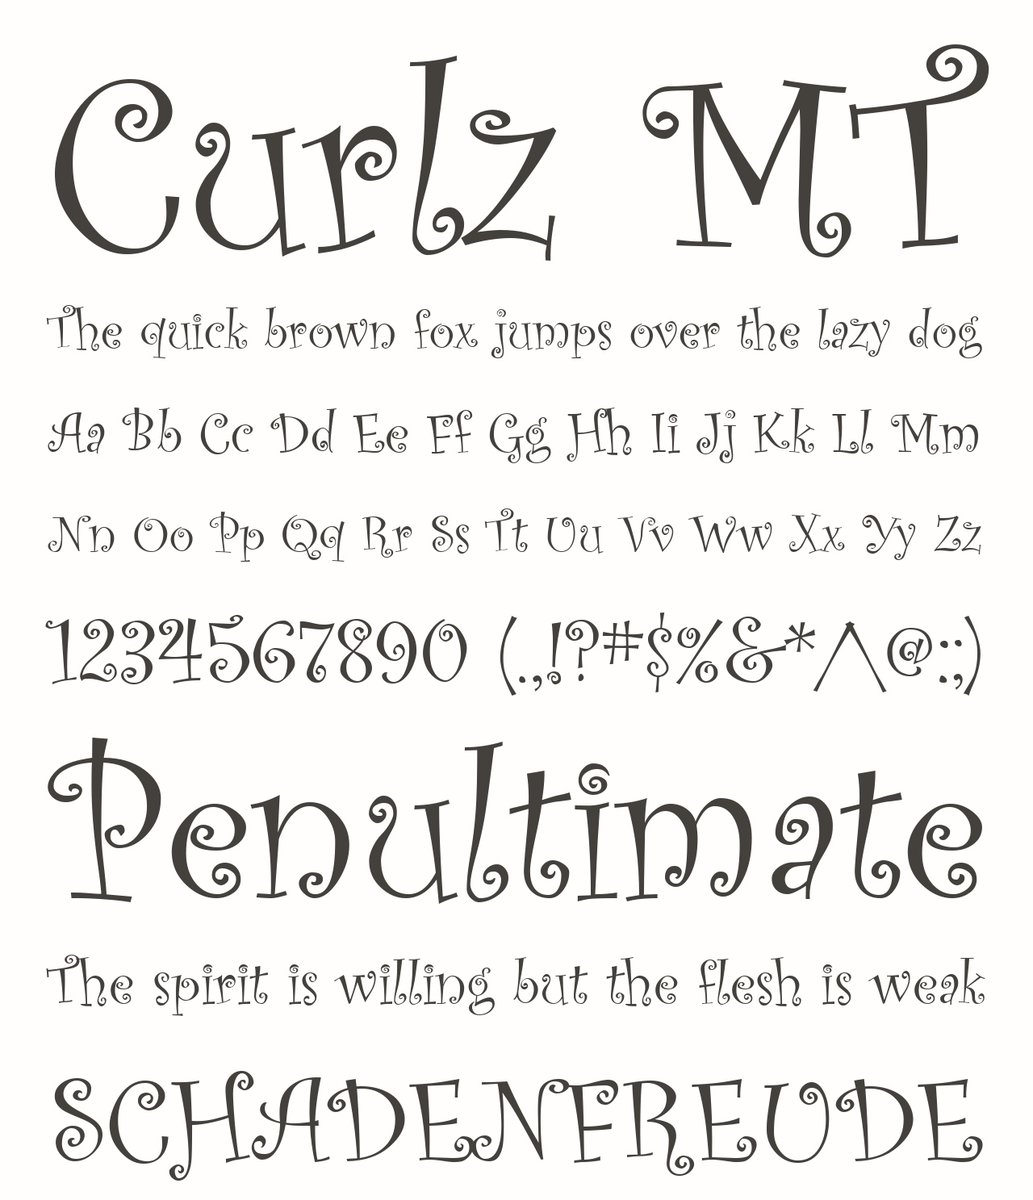 Curlz MT
The quick brown fox jumps over the lazy dog
Aa Bb Cc Dd Ee Ff Gg Hh Ii Jj Kk Ll Mm
Nn Oo Pp Qq Rr Ss Tt Uu Vv Ww Xx Yy Zz
1234567890 (.,!?#$%&*^@:;)
Penultimate
The spirit is willing but the flesh is weak
SCHADENFREUDE